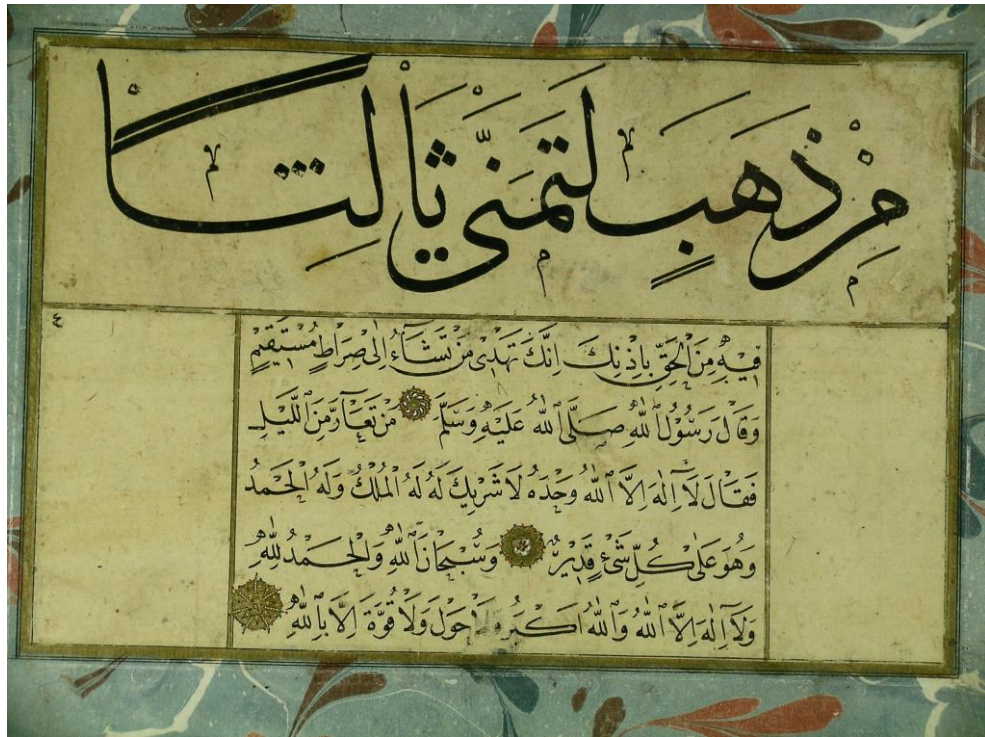 مِنْ ذَهَبٍ لَتَمَنّٰى ثَالِثًا
٤
فِيْهِ مِنَ الْحَقِّ بِاِذْنِكَ اِنَّكَ تَهْدِى مَنْ تَشَآءُ اِلٰى صِرَاطٍ مُسْتَقِيْمٍ
وَقَالَ رَسُوْلُ اللّٰهِ صَلَّى اللّٰهُ عَلَيْهِ وَسَلَّمَ مَنْ تَعَآرَّ مِنَ اللَّيْلِ
فَقَالَ لَآ اِلٰهَ اِلَّا اللّٰهُ وَحْدَهُ لَا شَرِيْكَ لَهُ لَهُ الْمُلْكُ وَلَهُ الْحَمْدُ
وَهُوَ عَلٰى كُلِّ شَىْءٍ قَدِيْرٌ وَسُبْحَانَ اللّٰهِ وَالْحَمْدُ لِلّٰهِ
وَلَآ اِلٰهَ اِلَّا اللّٰهُ وَاللّٰهُ اَكْبَرُ وَلَا حَوْلَ وَلَا قُوَّةَ اِلَّا بِاللّٰهِ